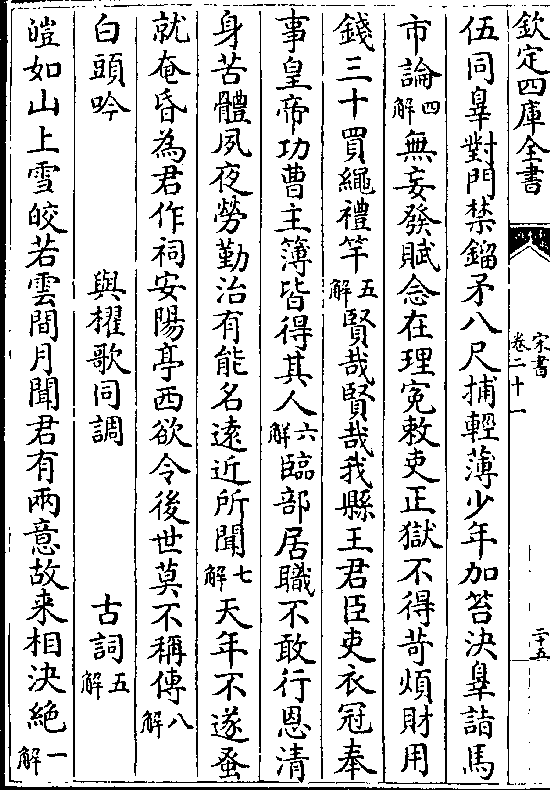 欽定四庫全書
宋書
卷二十一
二十五
伍同辠對門禁鎦矛八尺捕輕薄少年加笞決辠詣馬
市論四解無妄發賦念在理寃敕吏正獄不得苛煩財用
錢三十買繩禮竿五解賢哉賢哉我縣王君臣吏衣冠奉
事皇帝功曹主簿皆得其人六解臨部居職不敢行恩清
身苦體夙夜勞勤治有能名遠近所聞七解天年不遂蚤
就奄昏為君作祠安陽亭西欲令後世莫不稱傳八解
白頭吟 與櫂歌同調 古詞五解
皚如山上雪皎若雲間月聞君有兩意故来相決絶一解